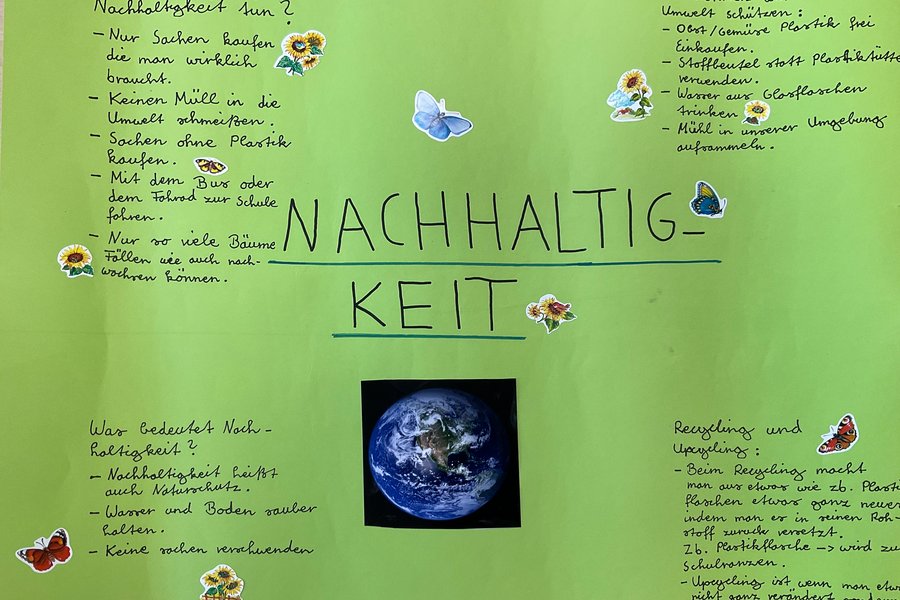 Nachhaltigkeit tun?
- Nur Sachen kaufen
die man wirklich
braucht.
- Keinen Müll in die
Umwelt schmeißen.
- Sachen ohne Plastik
kaufen.
- Mit dem Bus oder
dem Fahrad zur Schule
fahren.
- Nur so viele Bäume
Fällen wie auch nach-
wachsen können.
Umwelt schützen:
- Obst/Gemüse Plastik frei
Einkaufen.
- Stoffbeutel statt Plastiktütte
verwenden.
- Wasser aus Glasflaschen
trinken
- Mühl in unserer Umgebung
aufsammeln.
NACHHALTIG-
KEIT
Was bedeutet Nach-
haltigkeit?
- Nachhaltigkeit heißt
auch Naturschutz.
- Wasser und Boden sauber
halten.
- Keine sachen verschwenden
Recycling und
Upcycling:
- Beim Recycling macht
man aus etwas wie zb. Plasti
flaschen etwas ganz neues
indem man es in seinen Roh-
stoff zurück versetzt.
Zb. Plastikflasche -> wird zu
Schulranzen.
- Upcycling ist wenn man etwa
nicht ganz verändert